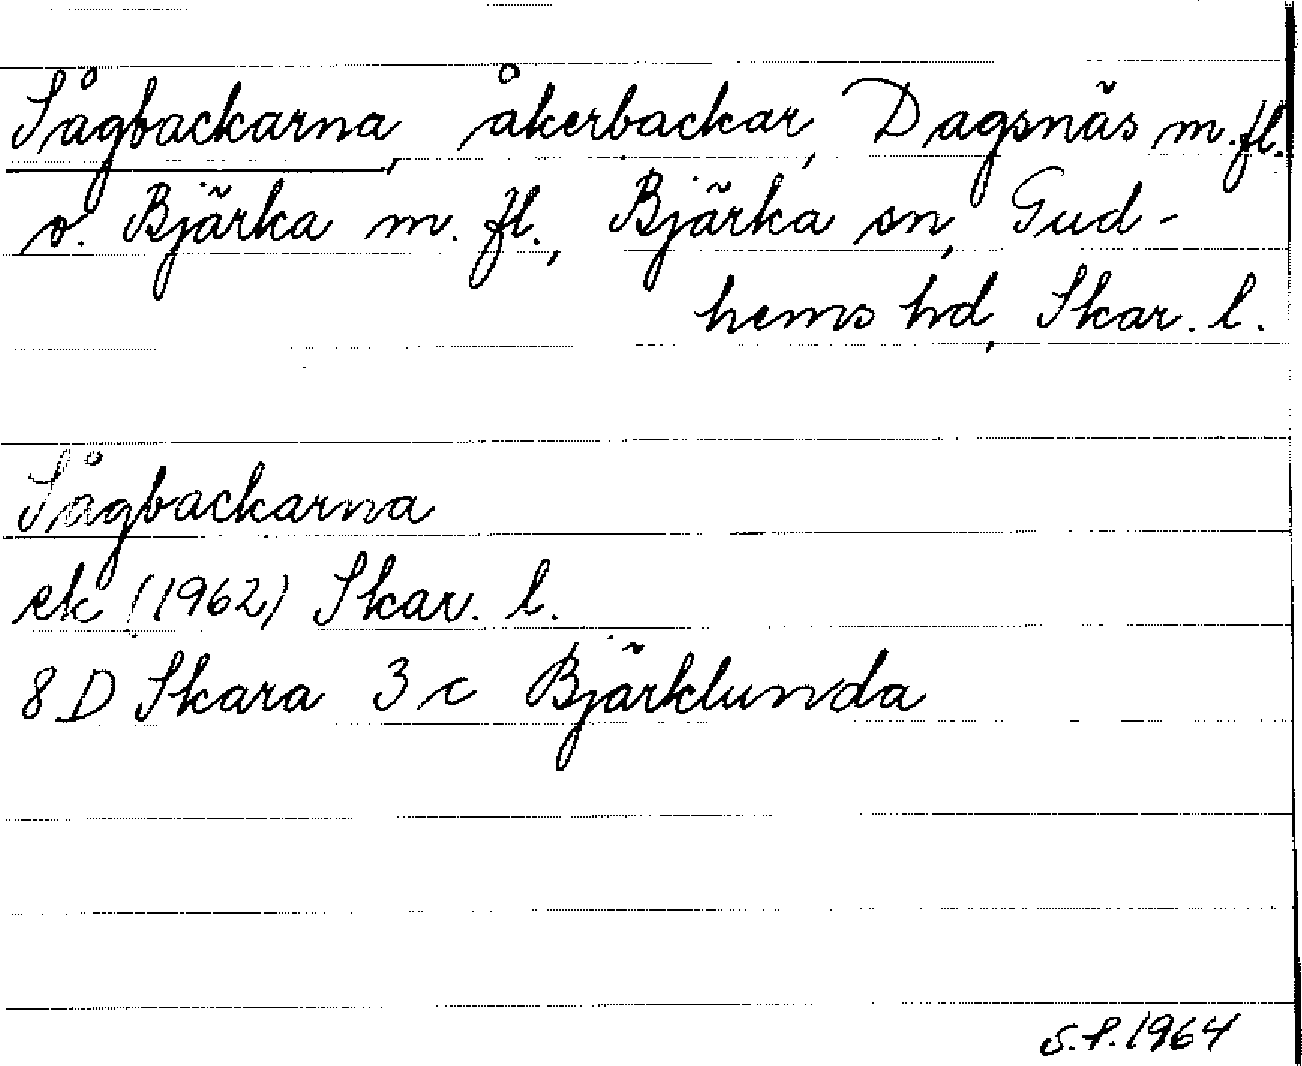 Sågbackarna, åkerbackar, Dagsnäs m.fl.
o. Bjärka m. fl., Bjärka sn, Gud-
hems hd, Skar. l.
Sågbackarna
ek (1962) Skar. l.
8 D Skara 3 c Bjärklunda
S.P. 1964